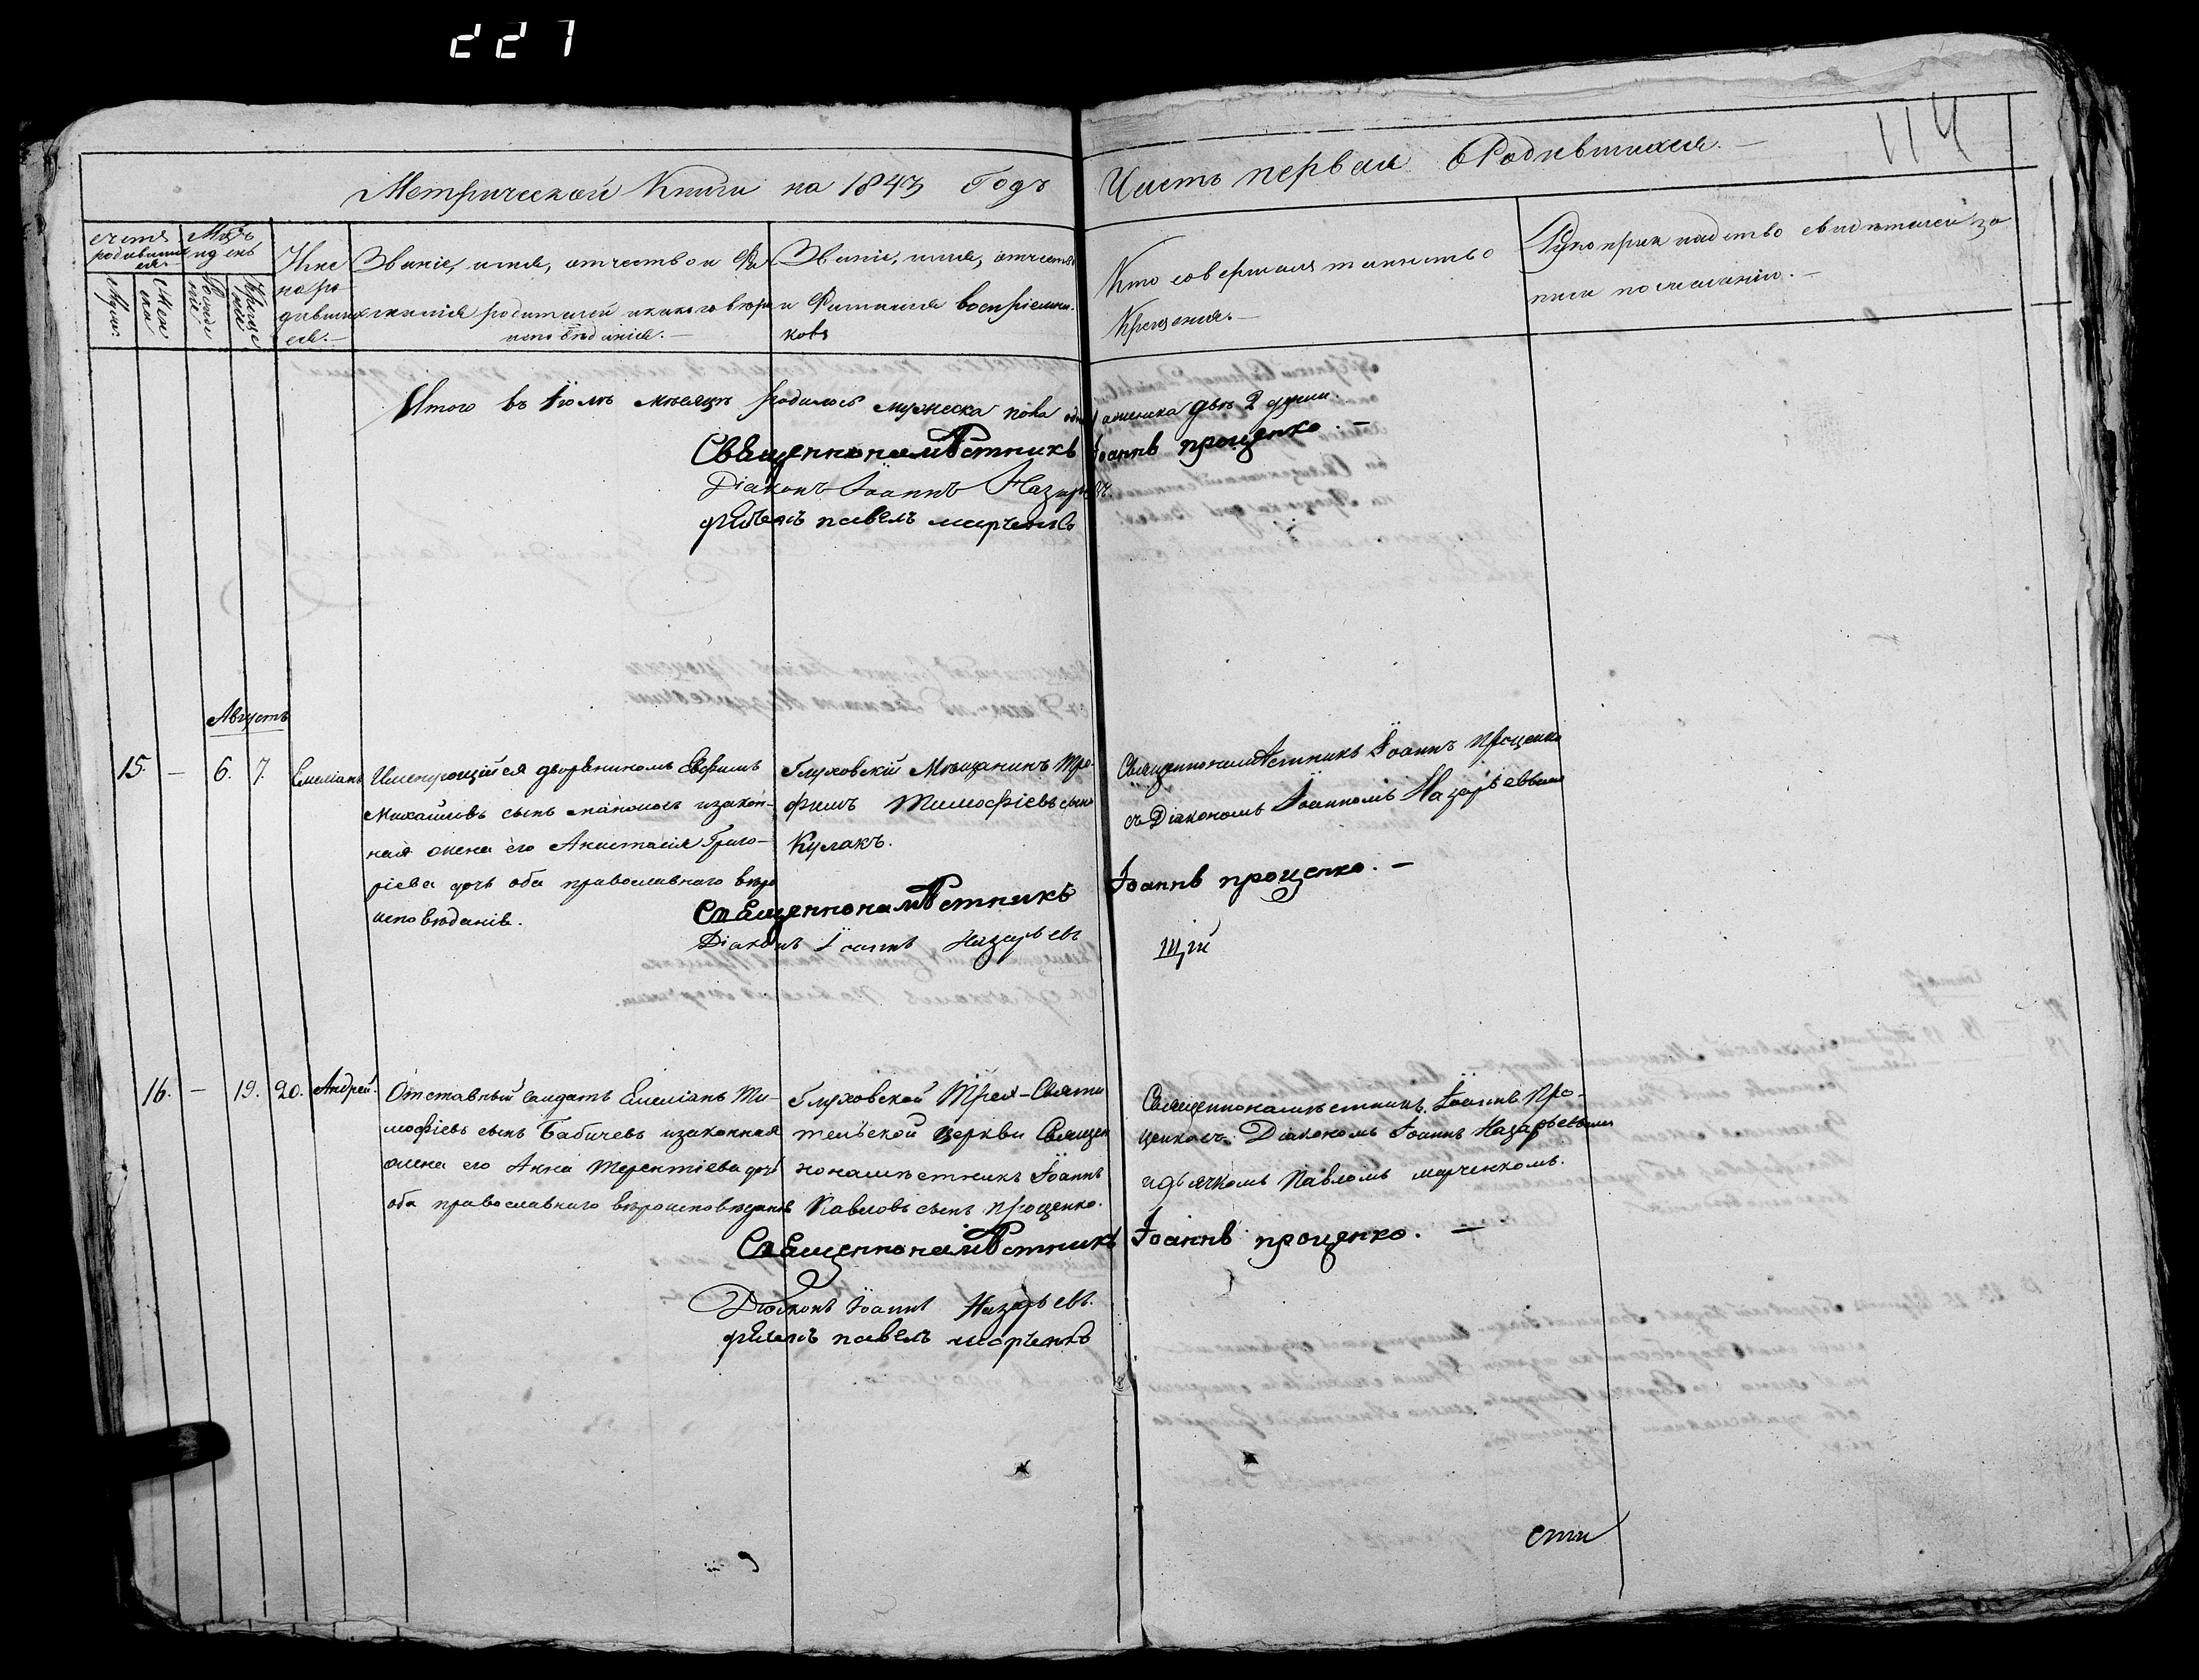 227
114
Метрической Книги на 1843 Годъ Часть первая о Родившихся.—
счетъ родившихся.
Муж:
Жен ска
Мѣсяцъ и день
Рожденія
Крещенія
Имя народившихся.—
Званіе, имя, отчество и Фамилія родителей и какого вѣроисповѣданія.—
Званіе, имя, отчество и Фамилія воспріемниковъ
Кто совершалъ таинство Крещенія.—
Рукоприкладство свидѣтелей записи по желанію.—
Итого въ Іюлѣ мѣсяцѣ родилось мужеска пола одна женска двѣ 2 души.
Священнонамѣстникъ Іоаннъ проценко.—
Діаконъ Іоаннъ Назарьевъ
дьячокъ павелъ марченко
Августъ
15. — 6. 7. Емеліанъ
Именующійся дворяниномъ Евфимъ
Михайловъ сынъ Манойло изакон-
ная жена его Анастасія Григо-
ріева дочь оба православнаго вѣро
исповѣданія.
Глуховскій Мѣщанинъ Тро-
фимъ Тимофіевъ сынъ
Кулакъ.
Священнонамѣстникъ Іоаннъ Проценко
съ Діакономъ Іоанномъ Назарьевымъ
Священнонамѣстникъ Іоаннъ проценко.—
Діаконъ Іоаннъ Назарьевъ
16. — 19. 20. Андрей.
Отставный солдатъ Емеліанъ Ти-
мофіевъ сынъ Бабичевъ изаконная
жена его Анна Терентіева дочь
оба православнаго вѣроисповѣданія
Глуховской Трех-Святи
тельской церкви Священ
нонамѣстникъ Іоаннъ
Павловъ сынъ Проценко.
Священнонамѣстникъ Іоаннъ Про-
ценко съ Діакономъ Іоанномъ Назарьевымъ
идьячкомъ Павломъ марченкомъ.
Священнонамѣстникъ Іоаннъ проценко.—
Діаконъ Іоаннъ Назарьевъ.
дьячокъ павелъ марченко